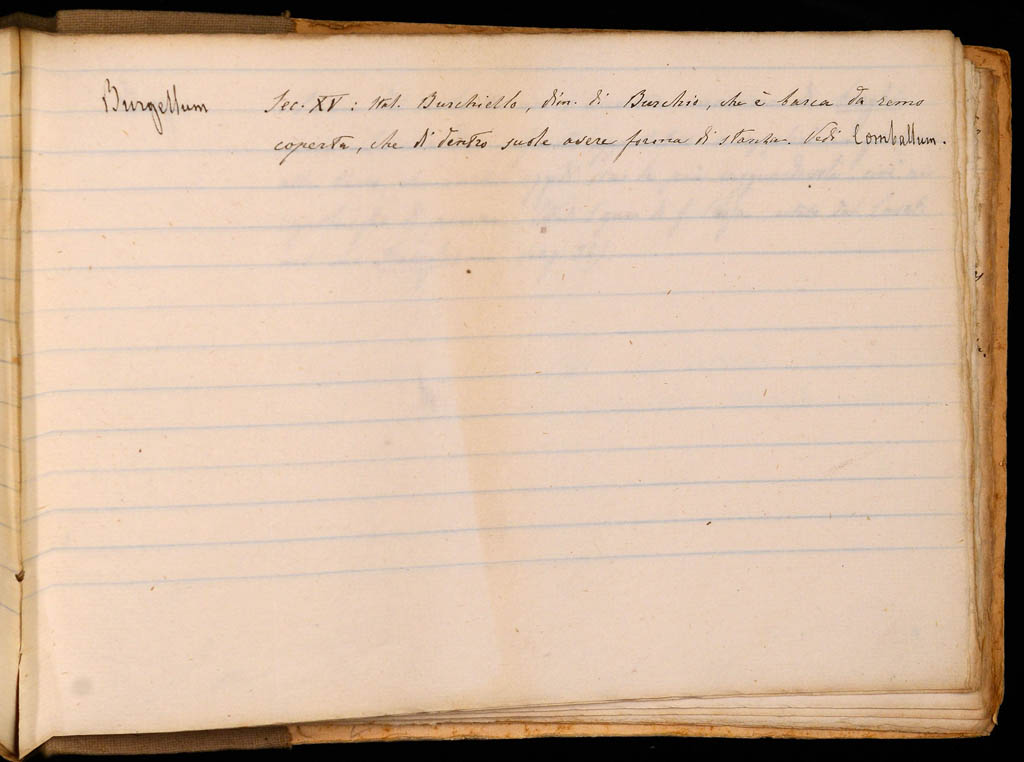 Burgellum Sec. XV: ital. Burchiello, dim. di Burchio, che è barca da remo
coperta, che di dentro suole avere forma di stanza. Vedi Comballum.